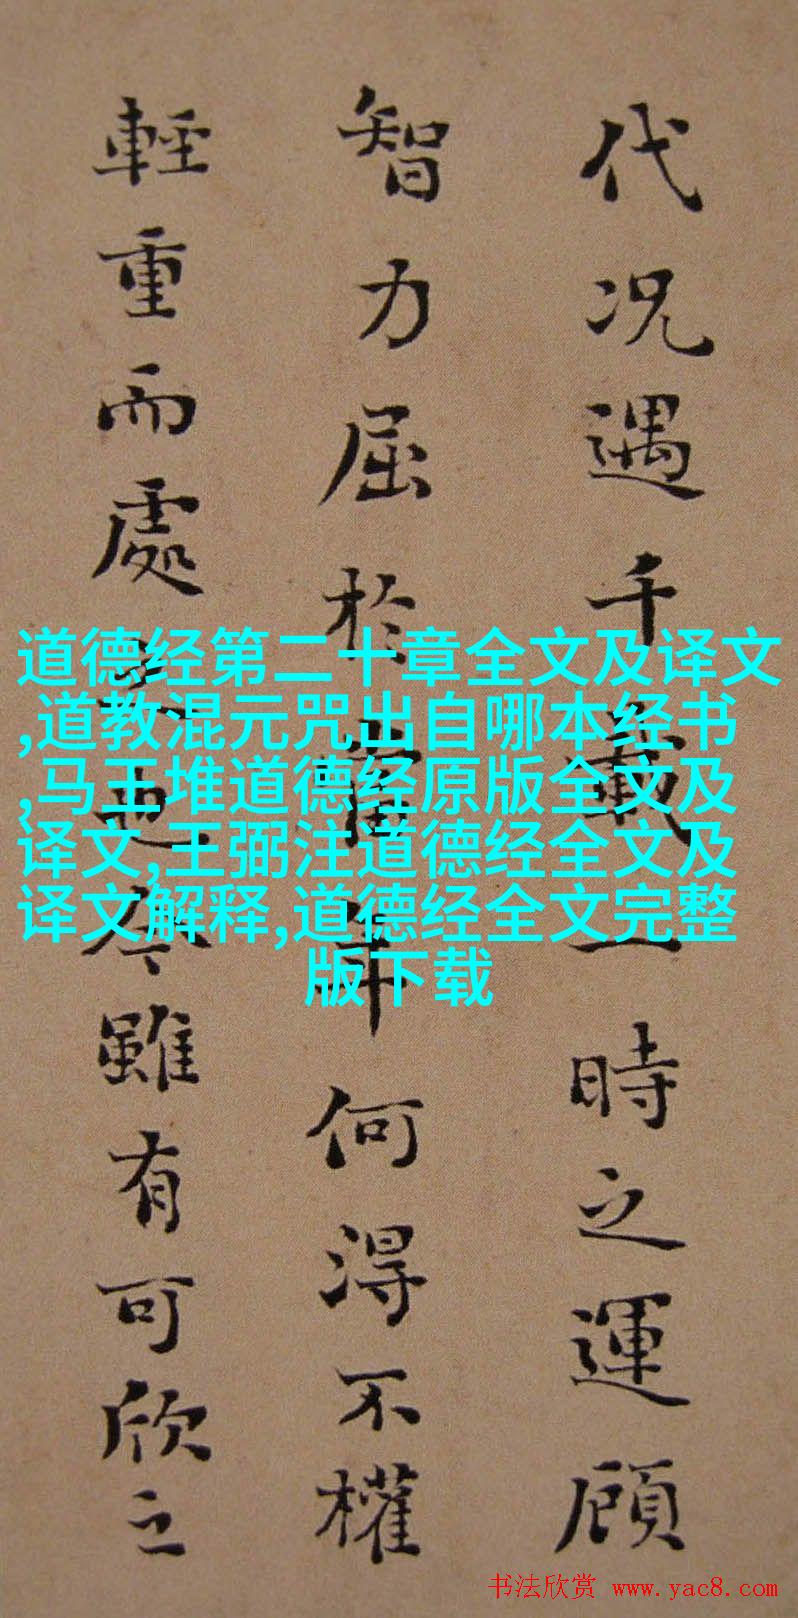 代况遇千載一時之運顧
智力屈於當年何得不權
輕重而處之也今雖有可欣之
道德经第二十章全文及译文
,道教混元咒出自哪本经书
,马王堆道德经原版全文及
译文,王弼注道德经全文及
译文解释,道德经全文完整
版下载
书法欣赏 www.yac8.com